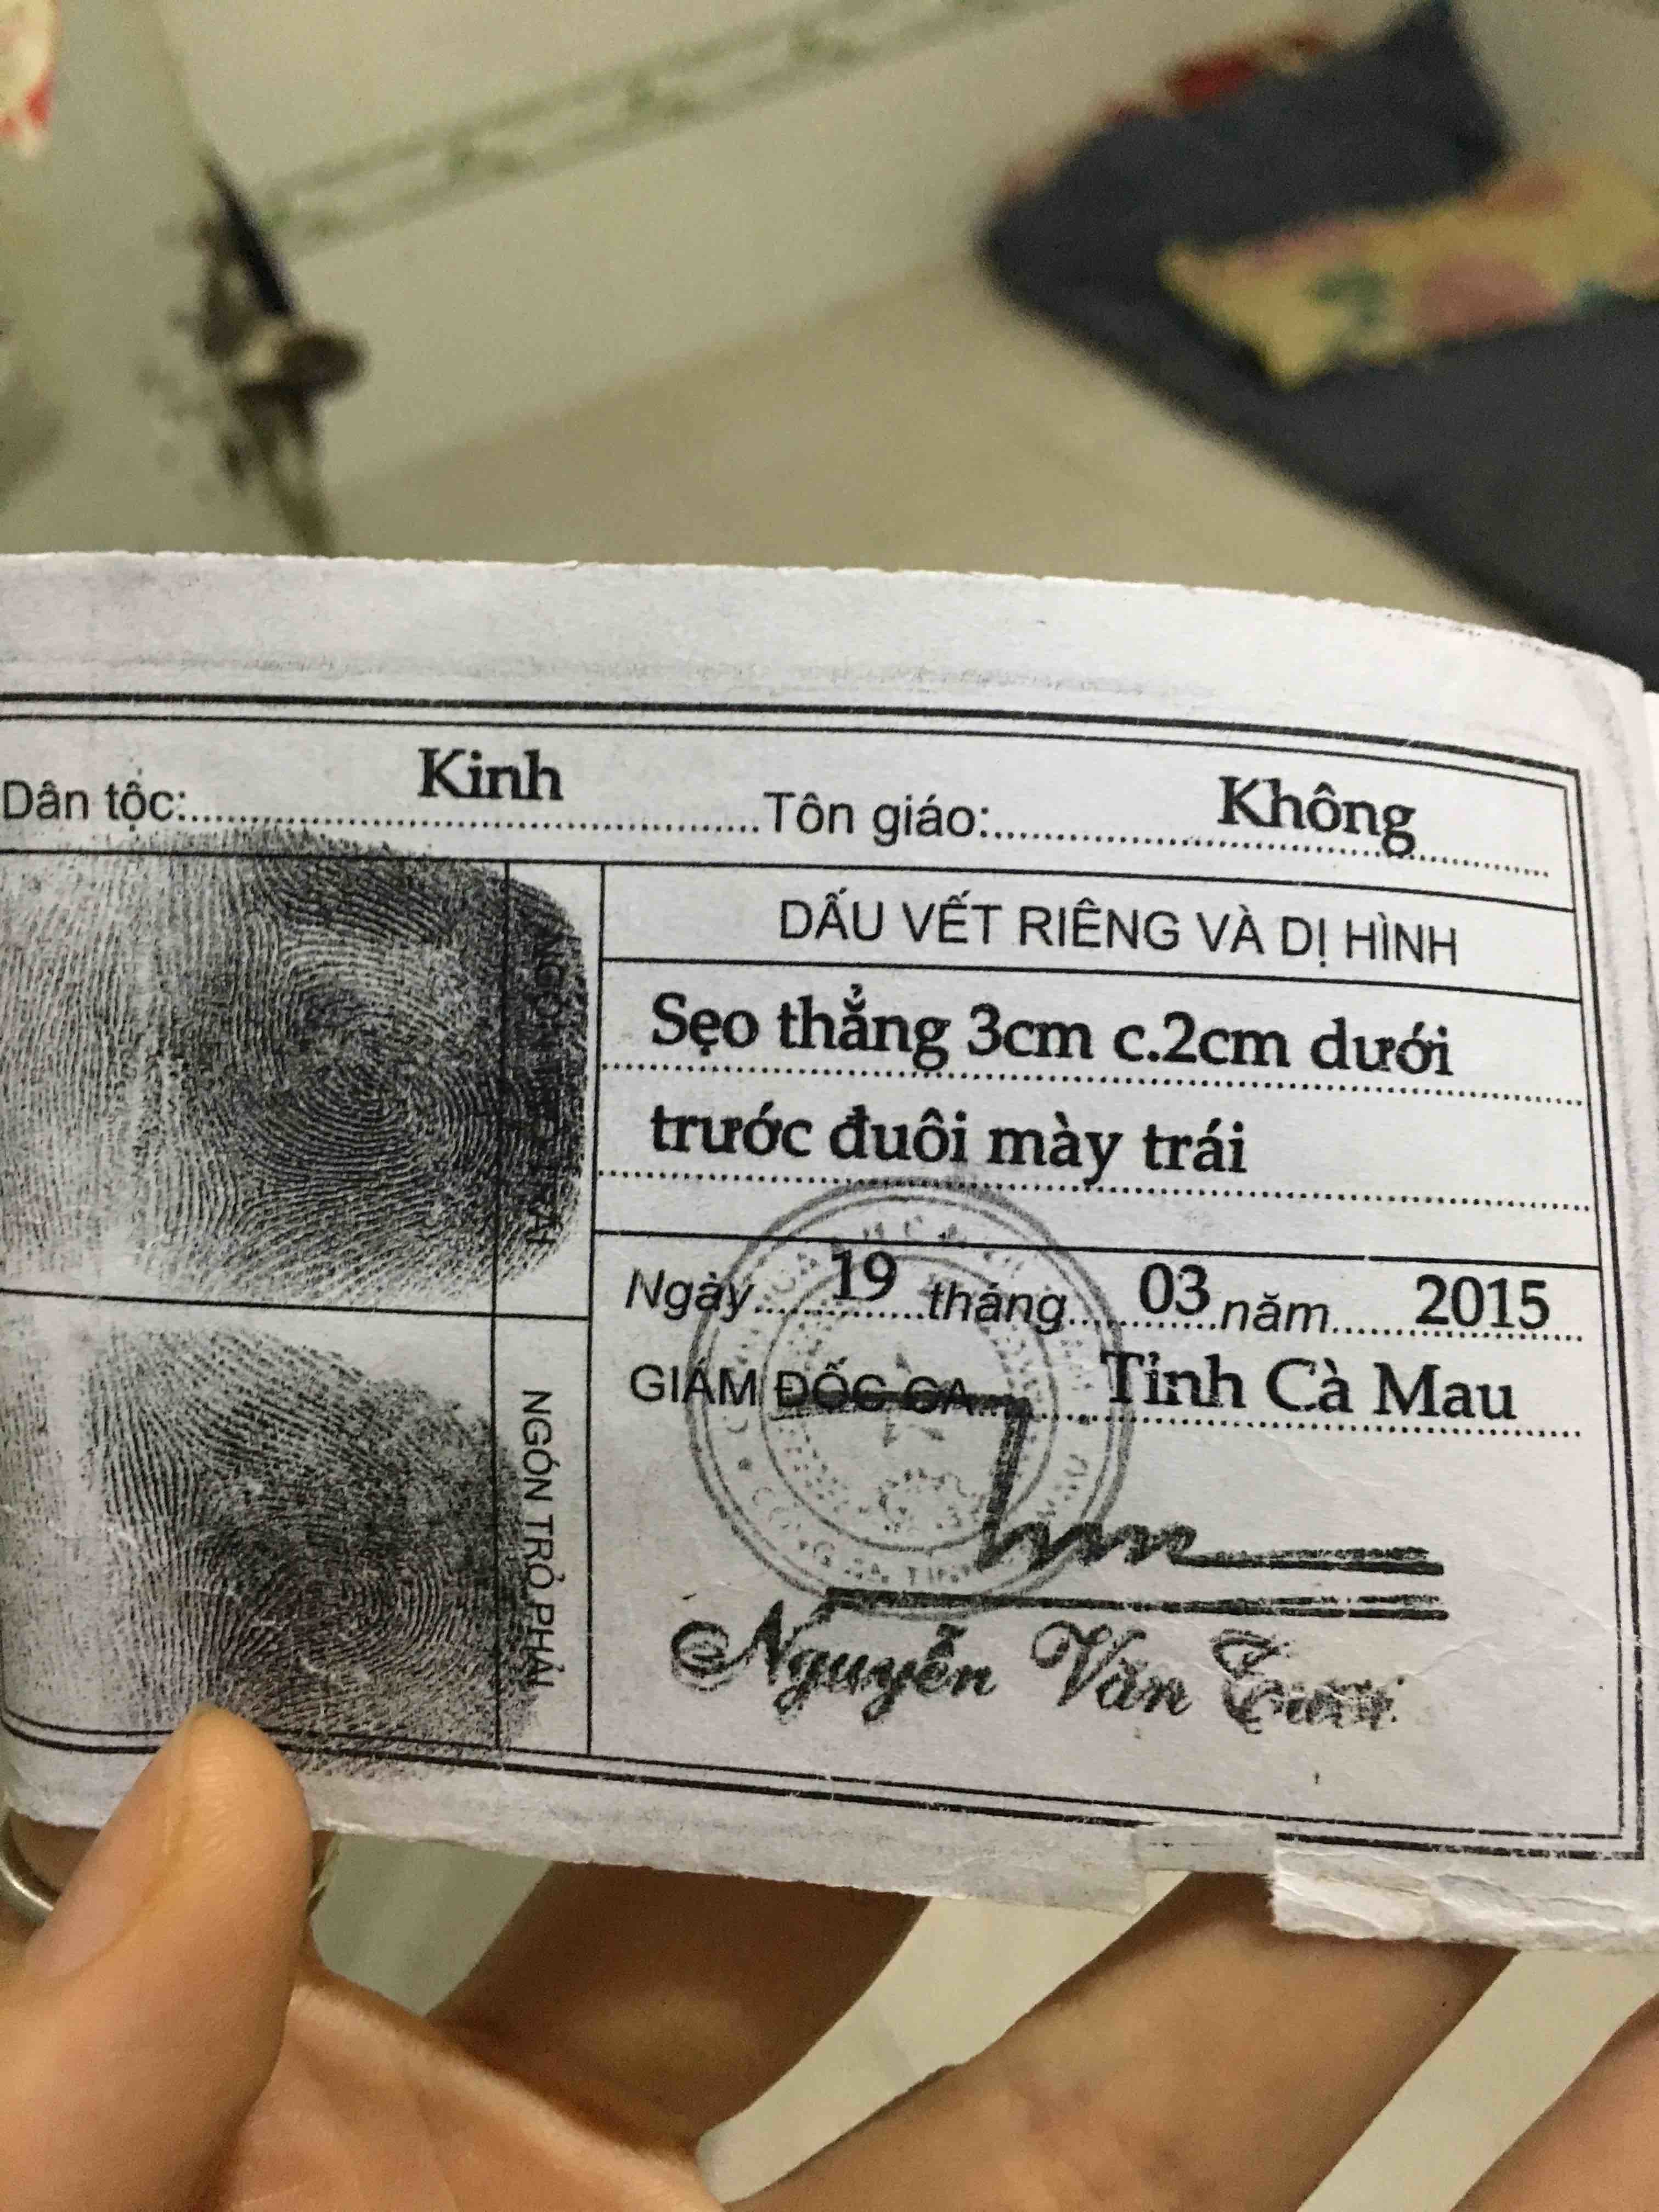 Dân tộc: Kinh Tôn giáo: Không
DẤU VẾT RIÊNG VÀ DỊ HÌNH
Sẹo thẳng 3cm c.2cm dưới
trước đuôi mày trái
Ngày 19 tháng 03 năm 2015
GIÁM ĐỐC CA Tỉnh Cà Mau
NGÓN TRỎ PHẢI
Nguyễn Văn